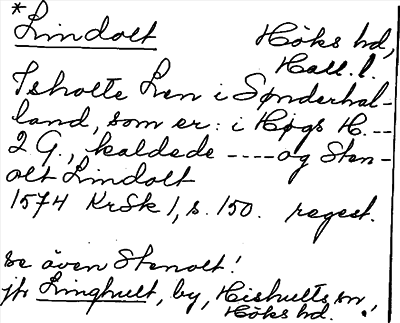 *Lindolt Höks hd,
Hall. l.
Isholte Len i Sønderhal-
land, som er: i Høgs H. ---
2 G., kaldede ---- og Sten-
olt Lindolt
1574 KrSk 1, s. 150. regest.
se även Stenolt!
jfr Linghult, by, Hishults sn,
Höks hd.